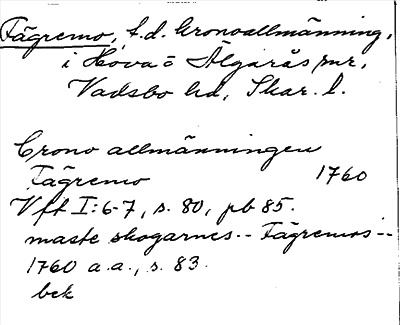 Fägremo, f.d. kronoallmänning,
i Hova o Älgarås snr,
Vadsbo hd, Skar. l.
Crono allmänningen
Fägremo 1760
Vft I:6-7, s. 80, pb 85.
maste skogarnes -- Fägremos --
1760 a.a., s. 83.
bek